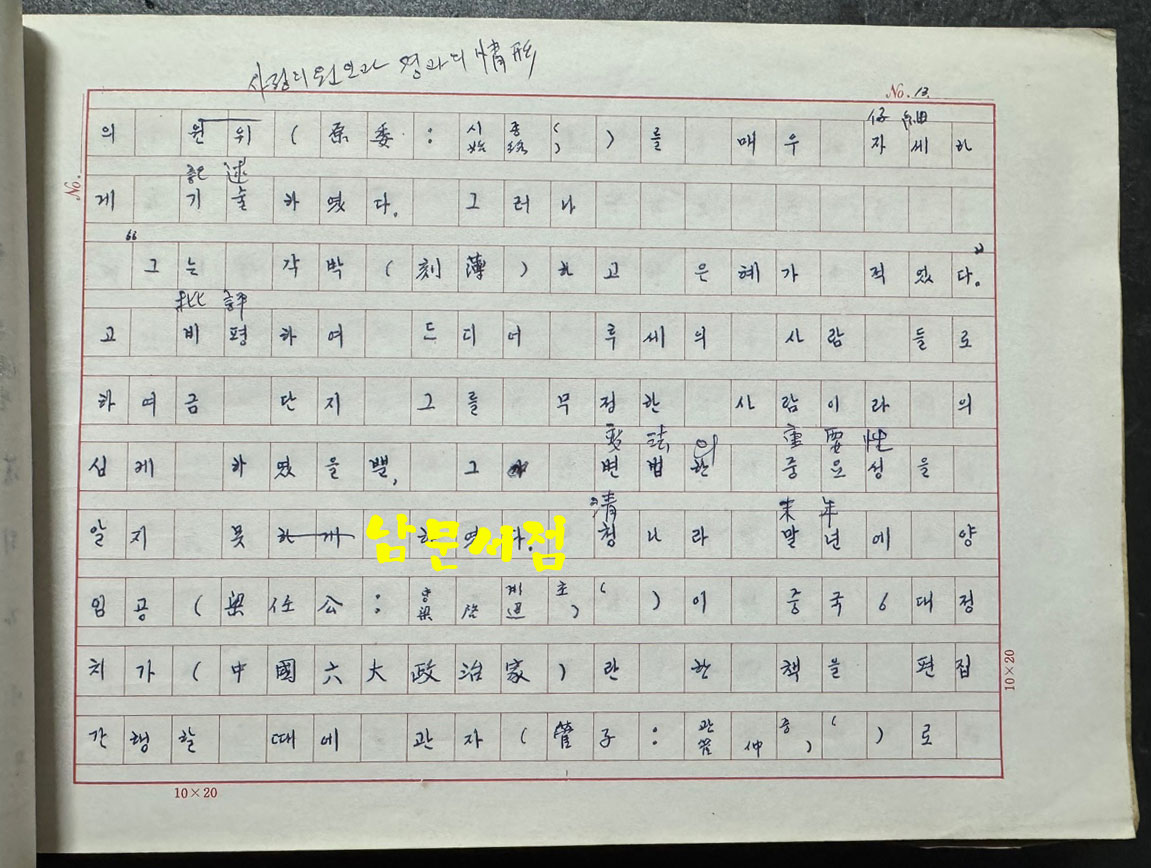 사정의 원인과 경과의 情形
No. 13
No.
仔細
의 원위(原委:시종(始終))를 매우 자세하
記述
게 기술하였다. 그러나
“그는 각박(刻薄)하고 은혜가 적었다.”
批評
고 비평하여 드디어 루세의 사람들로
하여금 단지 그를 무정한 사람이라 의
變法의 重要性
심케 하였을뿐, 그 변법한 중요성을
清 末年
알지 못하게 하였다. 청나라 말년에 양
남문서점
임공(梁任公:양계초(梁啓超))이 중국6대정
치가(中國六大政治家)란 한 책을 편집
간행할 때에 관자(管子:관중(管仲))로
10×20
10×20